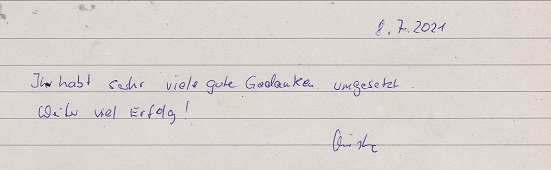 8.7.2021
Ihr habt sehr viele gute Gedanken umgesetzt.
Weiter viel Erfolg!